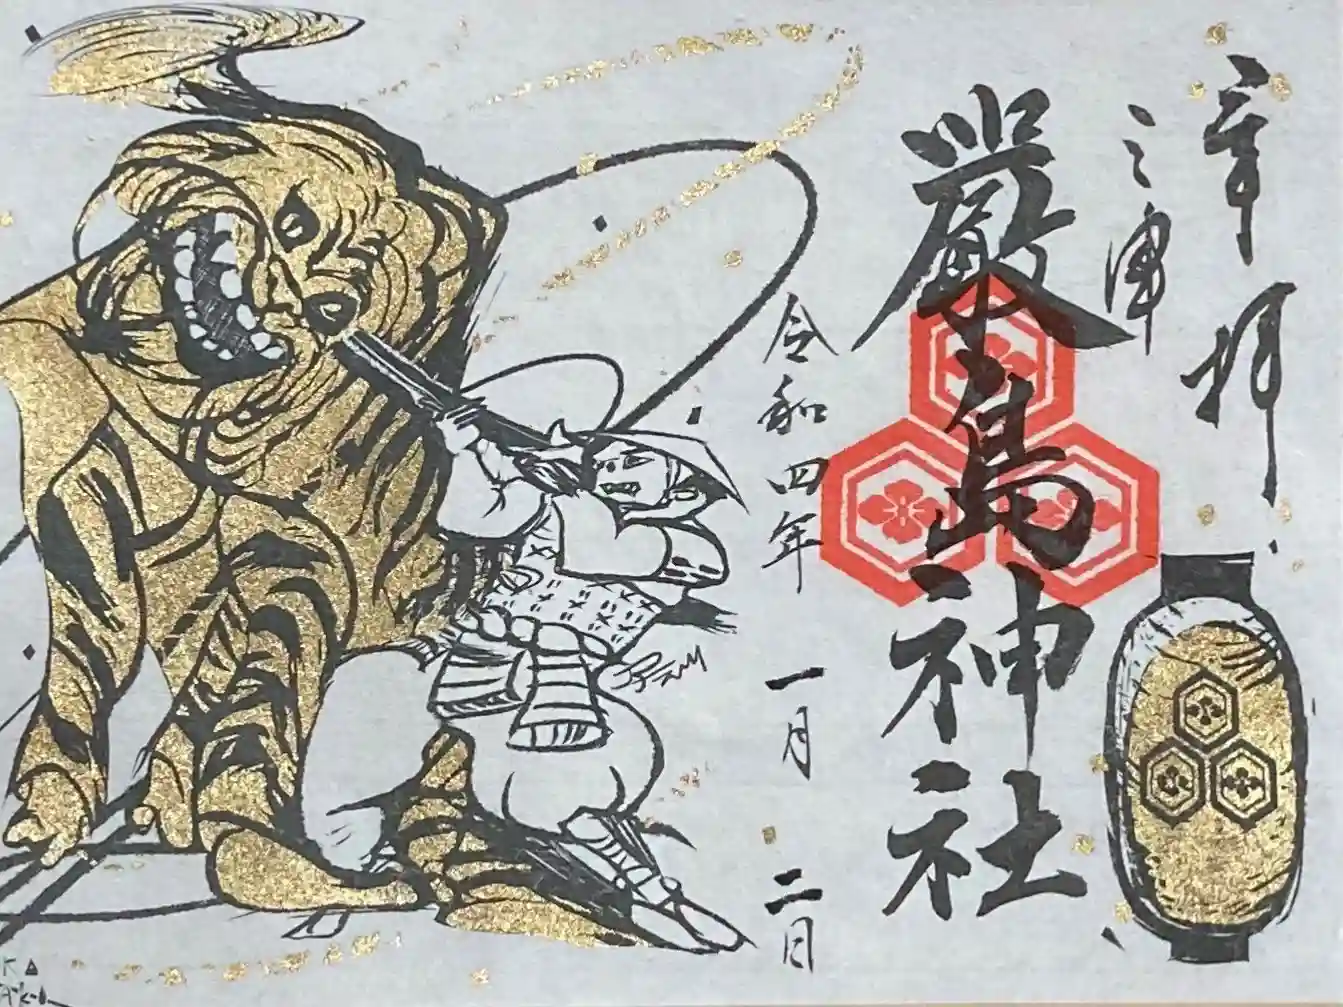 奉拝
三津
嚴島神社
令和四年一月二日